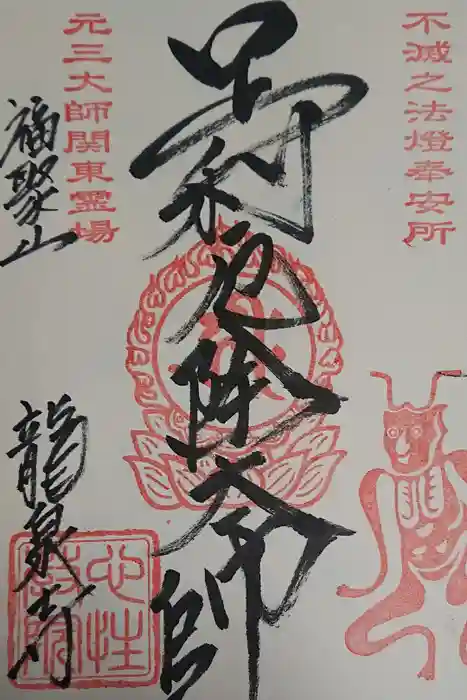 不滅之法燈奉安所
厄除大師
元三大師関東霊場
福聚山
龍泉寺